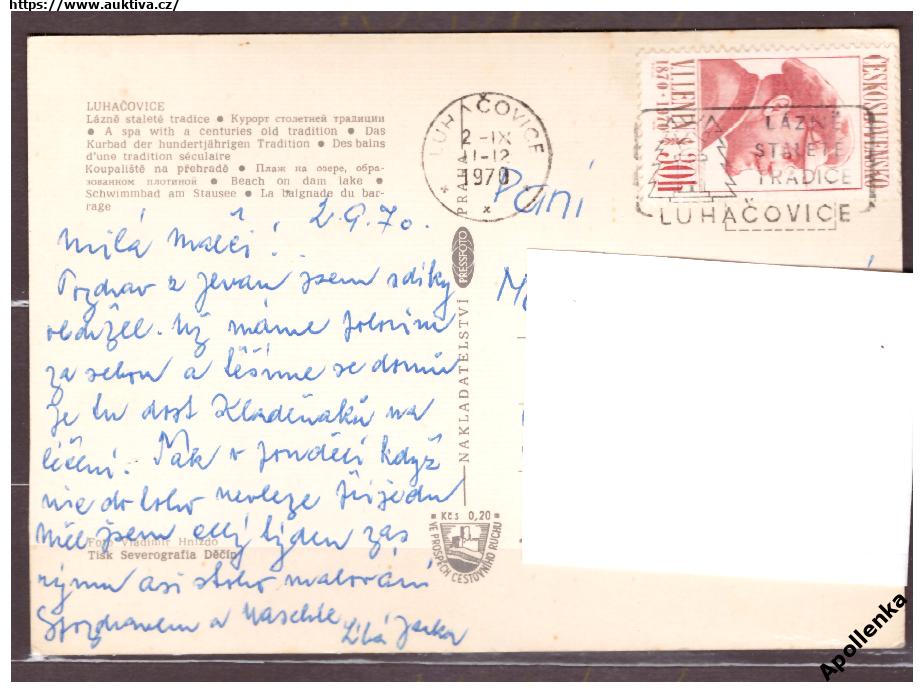 https://www.auktiva.cz/
LUHAČOVICE
Lázně staleté tradice ● Курорт столетней традиции
● A spa with a centuries old tradition ● Das
Kurbad der hundertjährigen Tradition ● Des bains
d'une tradition séculaire
Koupaliště na přehradě ● Пляж на озере, обра-
зованном плотиной ● Beach on dam lake ●
Schwimmbad am Stausee ● La baignade du bar-
rage
2.9.70.
Milá
Pozdrav z Jevan jsem s díky
obdržel. Už máme polovinu
za sebou a těšíme se domů
je tu dost Kladeňáků na
léčení. Tak v pondělí když
nic do toho nevleze přijedu
Měl jsem celý týden zas
rýmu asi z toho malování
S pozdravem a
Líbá
Foto Vladimír Hnízdo
Tisk Severografia Děčín
LUHAČOVICE
2.-IX
11-12
1970
PRAHA
NAKLADATELSTVÍ
PRESSFOTO
Kčs 0,20
VE PROSPĚCH CESTOVNÍHO RUCHU
Paní
ČESKOSLOVENSKO
V.I.LENIN
1870-1970
30h
LÁZNĚ
STALETÉ
TRADICE
LUHAČOVICE
Apollenka